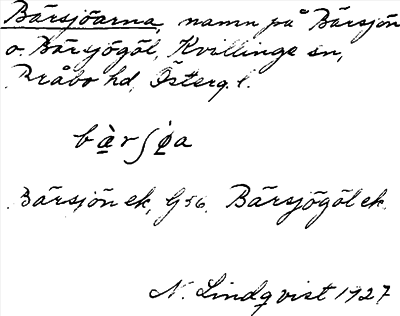 Bärsjöarna, namn på Bärsjön
o. Bärsjögöl, Kvillinge sn,
Bråbo hd, Östergl.
Bärsjön ek, G56. Bärsjögöl ek.
N. Lindqvist 1927